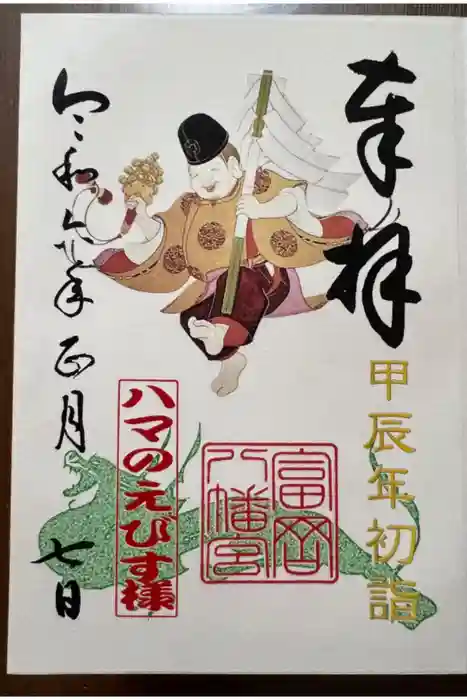 奉拝
甲辰年初詣
富岡
八幡宮
ハマのえびす様
令和六年正月
七日